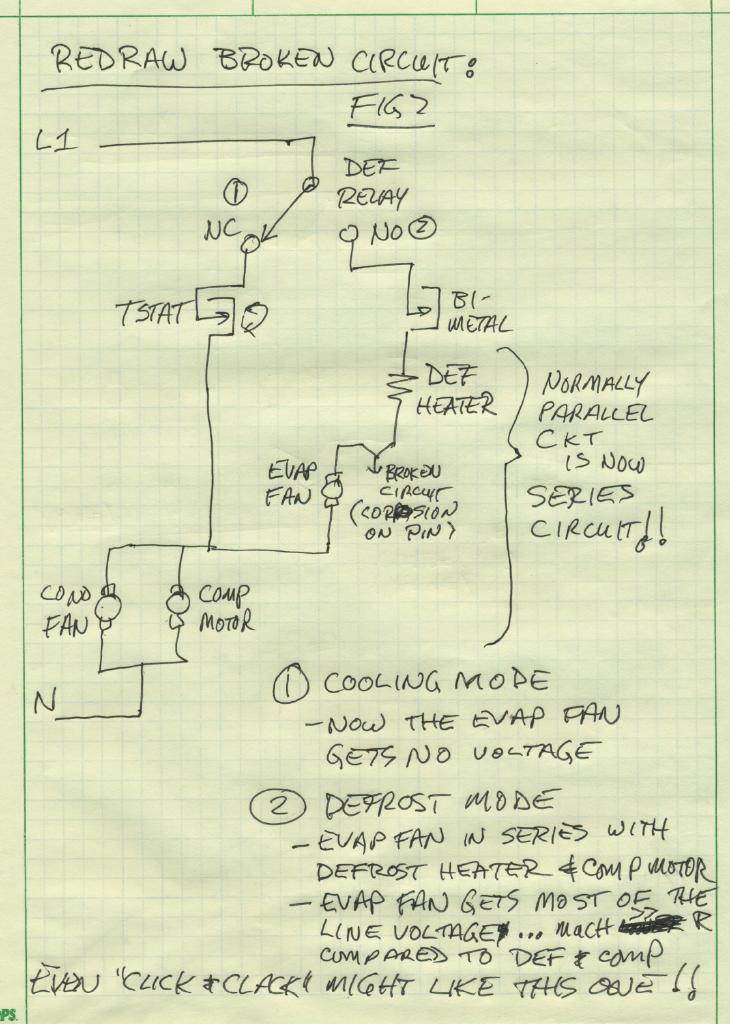 REDRAW BROKEN CIRCUIT:
FIG 2
L1
DEF
RELAY
①
NC
NO ②
TSTAT
BI-
METAL
DEF
HEATER
NORMALLY
PARALLEL
CKT
IS NOW
SERIES
CIRCUIT!!
EVAP
FAN
BROKEN
CIRCUIT
(CORROSION
ON PIN)
COND
FAN
COMP
MOTOR
N
① COOLING MODE
- NOW THE EVAP FAN
GETS NO VOLTAGE
② DEFROST MODE
- EVAP FAN IN SERIES WITH
DEFROST HEATER & COMP MOTOR
- EVAP FAN GETS MOST OF THE
LINE VOLTAGE ... MUCH >> R
COMPARED TO DEF & COMP
EVEN "CLICK & CLACK" MIGHT LIKE THIS ONE!!
OPS.